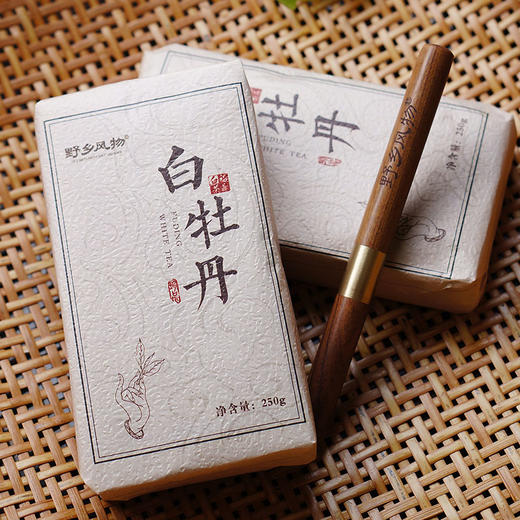 野乡风物®
白牡丹
FUDING
WHITE TEA
净含量：250g
牡丹
FUDING
WHITE TEA
净含量：250g
野乡风物®